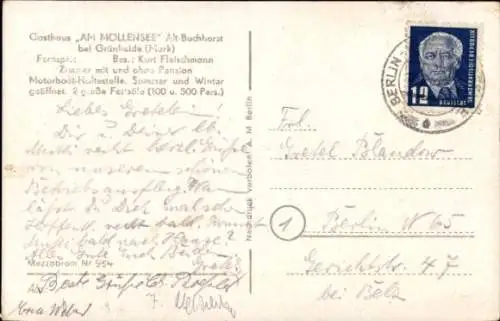 Gasthaus „AM MÖLLENSEE" Alt-Buchhorst
bei Grünheide (Mark)
Fernspr.: Bes.: Kurt Fleischmann
Zimmer mit und ohne Pension
Motorboot-Haltestelle. Sommer und Winter
geöffnet. 2 große Festsäle (100 u. 500 Pers.)
Liebes Gretelein!
Dir u. Deiner lb.
Mutti recht herzl. Grüße
von unserem schönen
Betriebsausflug. Wann
läßt Du Dich mal sehen
Hoffentl. recht bald. Kommst
bald nach
Alles Gute Euch
Mezzobrom Nr 954
Beste Grüße
Nachdruck verboten A. M. Berlin
BERLIN
12
DEUTSCHE
DEMOKRATISCHE REPUBLIK
Frl.
Gretel Blandow
1
Berlin N 65
Gerichtstr. 47
bei Belz